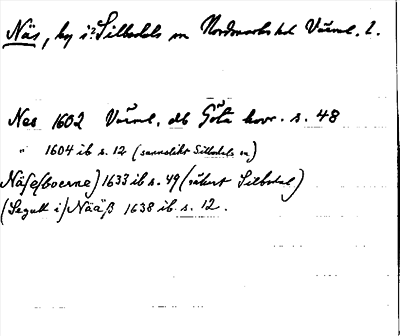 Näs, by i? Silbodals sn Nordmarks hd Värml. l.
Nes 1602 Värml. dlb Göta hovr. s. 48
" 1604 ib s. 12 (sannolikt Silbodals sn)
Näse(boerne) 1633 ib s. 49 (säkert Silbodal)
(Segutt i) Nääß 1638 ib. s. 12.